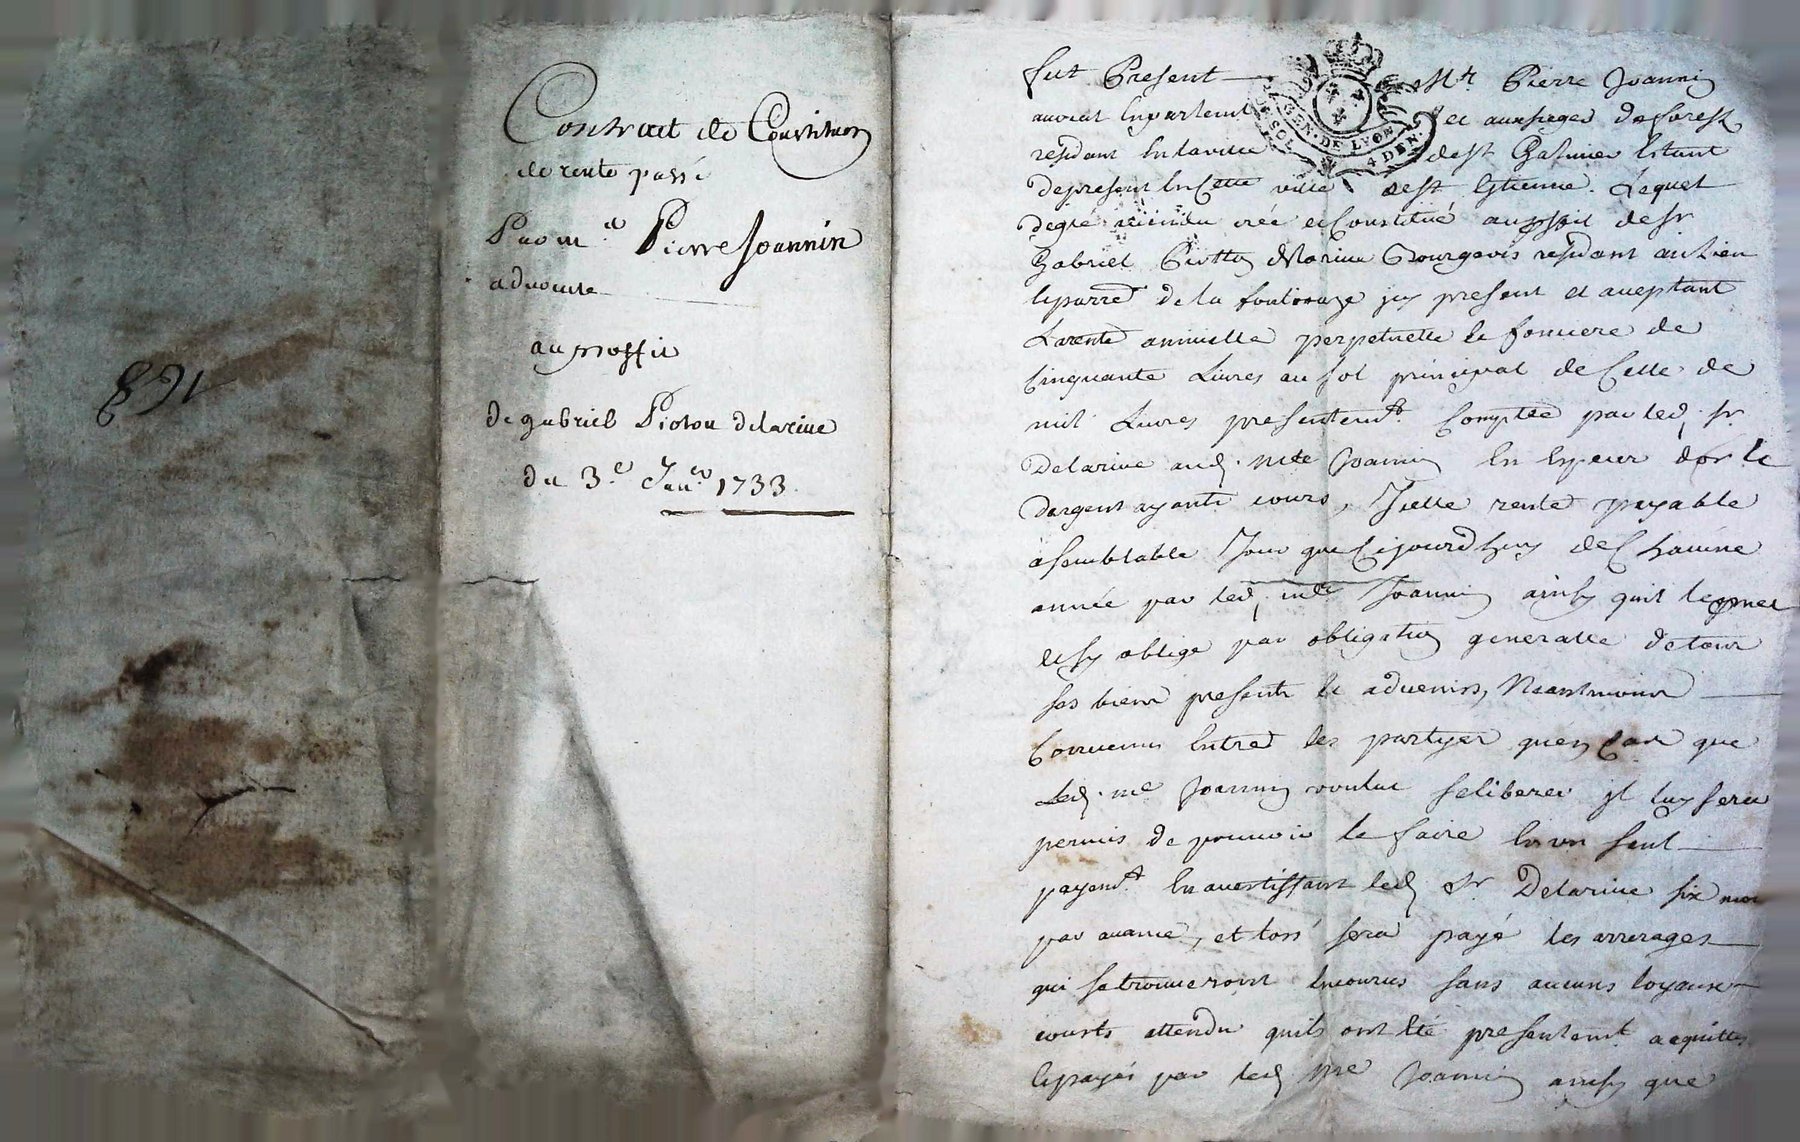 168
Contract de Constitution
de rente passé
Par m.e Pierre Joannin
advocat
au proffit
de gabriel Pioton delarive
du 3.e Janv.er 1733
fut Present Mr. Pierre Joannin
avocat en parlement et aux sieges de forest
residant en la ville de st Galmier Estant
de present en Cette ville de st Etienne. Lequel
de gré a vendu créé et Constitué au proffit de Sr
Gabriel Piotton delarive Bourgeois residant au lieu
et parr.e de la fouillouze icy present et acceptant
La rente annuelle perpetuelle et fonciere de
Cinquante Livres au sol principal de Celle de
mil Livres presentem.t Comptée par led. Sr.
Delarive aud. me Joannin en Especes dor et
dargent ayants cours, Icelle rente payable
a semblable Jour que Cejourdhuy de Chacune
année par led. me Joannin ainsy quil le promet
et sy oblige par obligation generalle de tous
ses biens presents et advenirs, Neantmoins
Convenu Entre les partyes quen Cas que
Led. me Joannin voulut se liberer il luy sera
permis de pouvoir le faire En un seul
payem.t En avertissant led. Sr Delarive six mois
par avance, et lors sera payé les arrerages
qui se trouveront encourus sans aucuns loyaux
couts attendu quils ont Eté presentem.t acquittés
et payés par led. Me Joannin ainsy que
GEN. DE LYON
4 DEN.